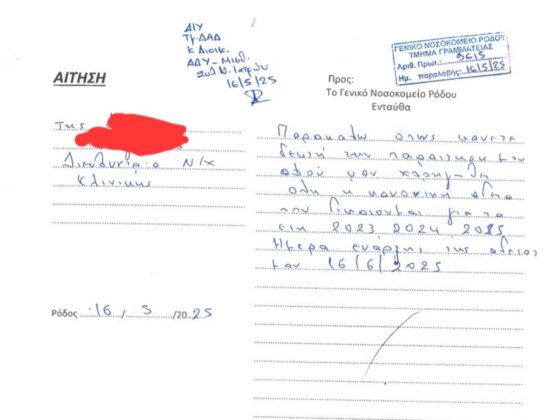 ΔΙΥ
Τμ. ΔΑΔ
κ Διοικ.
ΑΔΥ - Μισθ.
16/5/25
ΓΕΝΙΚΟ ΝΟΣΟΚΟΜΕΙΟ ΡΟΔΟΥ
ΤΜΗΜΑ ΓΡΑΜΜΑΤΕΙΑΣ
Αριθ. Πρωτ.: 3615
Ημ. παραλαβής: 16/5/25
ΑΙΤΗΣΗ
Της
Διευθύντρια Ν/Χ
Κλινικής
Ρόδος 16 / 5 /2025
Προς:
Το Γενικό Νοσοκομείο Ρόδου
Ενταύθα
Παρακαλώ όπως κάνετε
δεκτή την παραίτησή μου
αφού μου χορηγηθεί
όλη η κανονική άδεια
που δικαιούμαι για τα
έτη 2023 2024 2025
Ημέρα έναρξης της αδείας
μου 16/6/2025